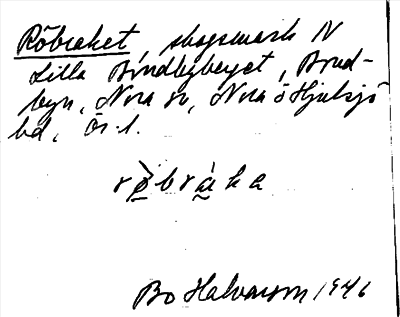 Röbraket, skogsmark N
Lilla Bindbyberget, Bind-
byn, Nora sn, Nora o Hjulsjö
bd, Ör. l.
röbráka
Bo Halvarson 1946